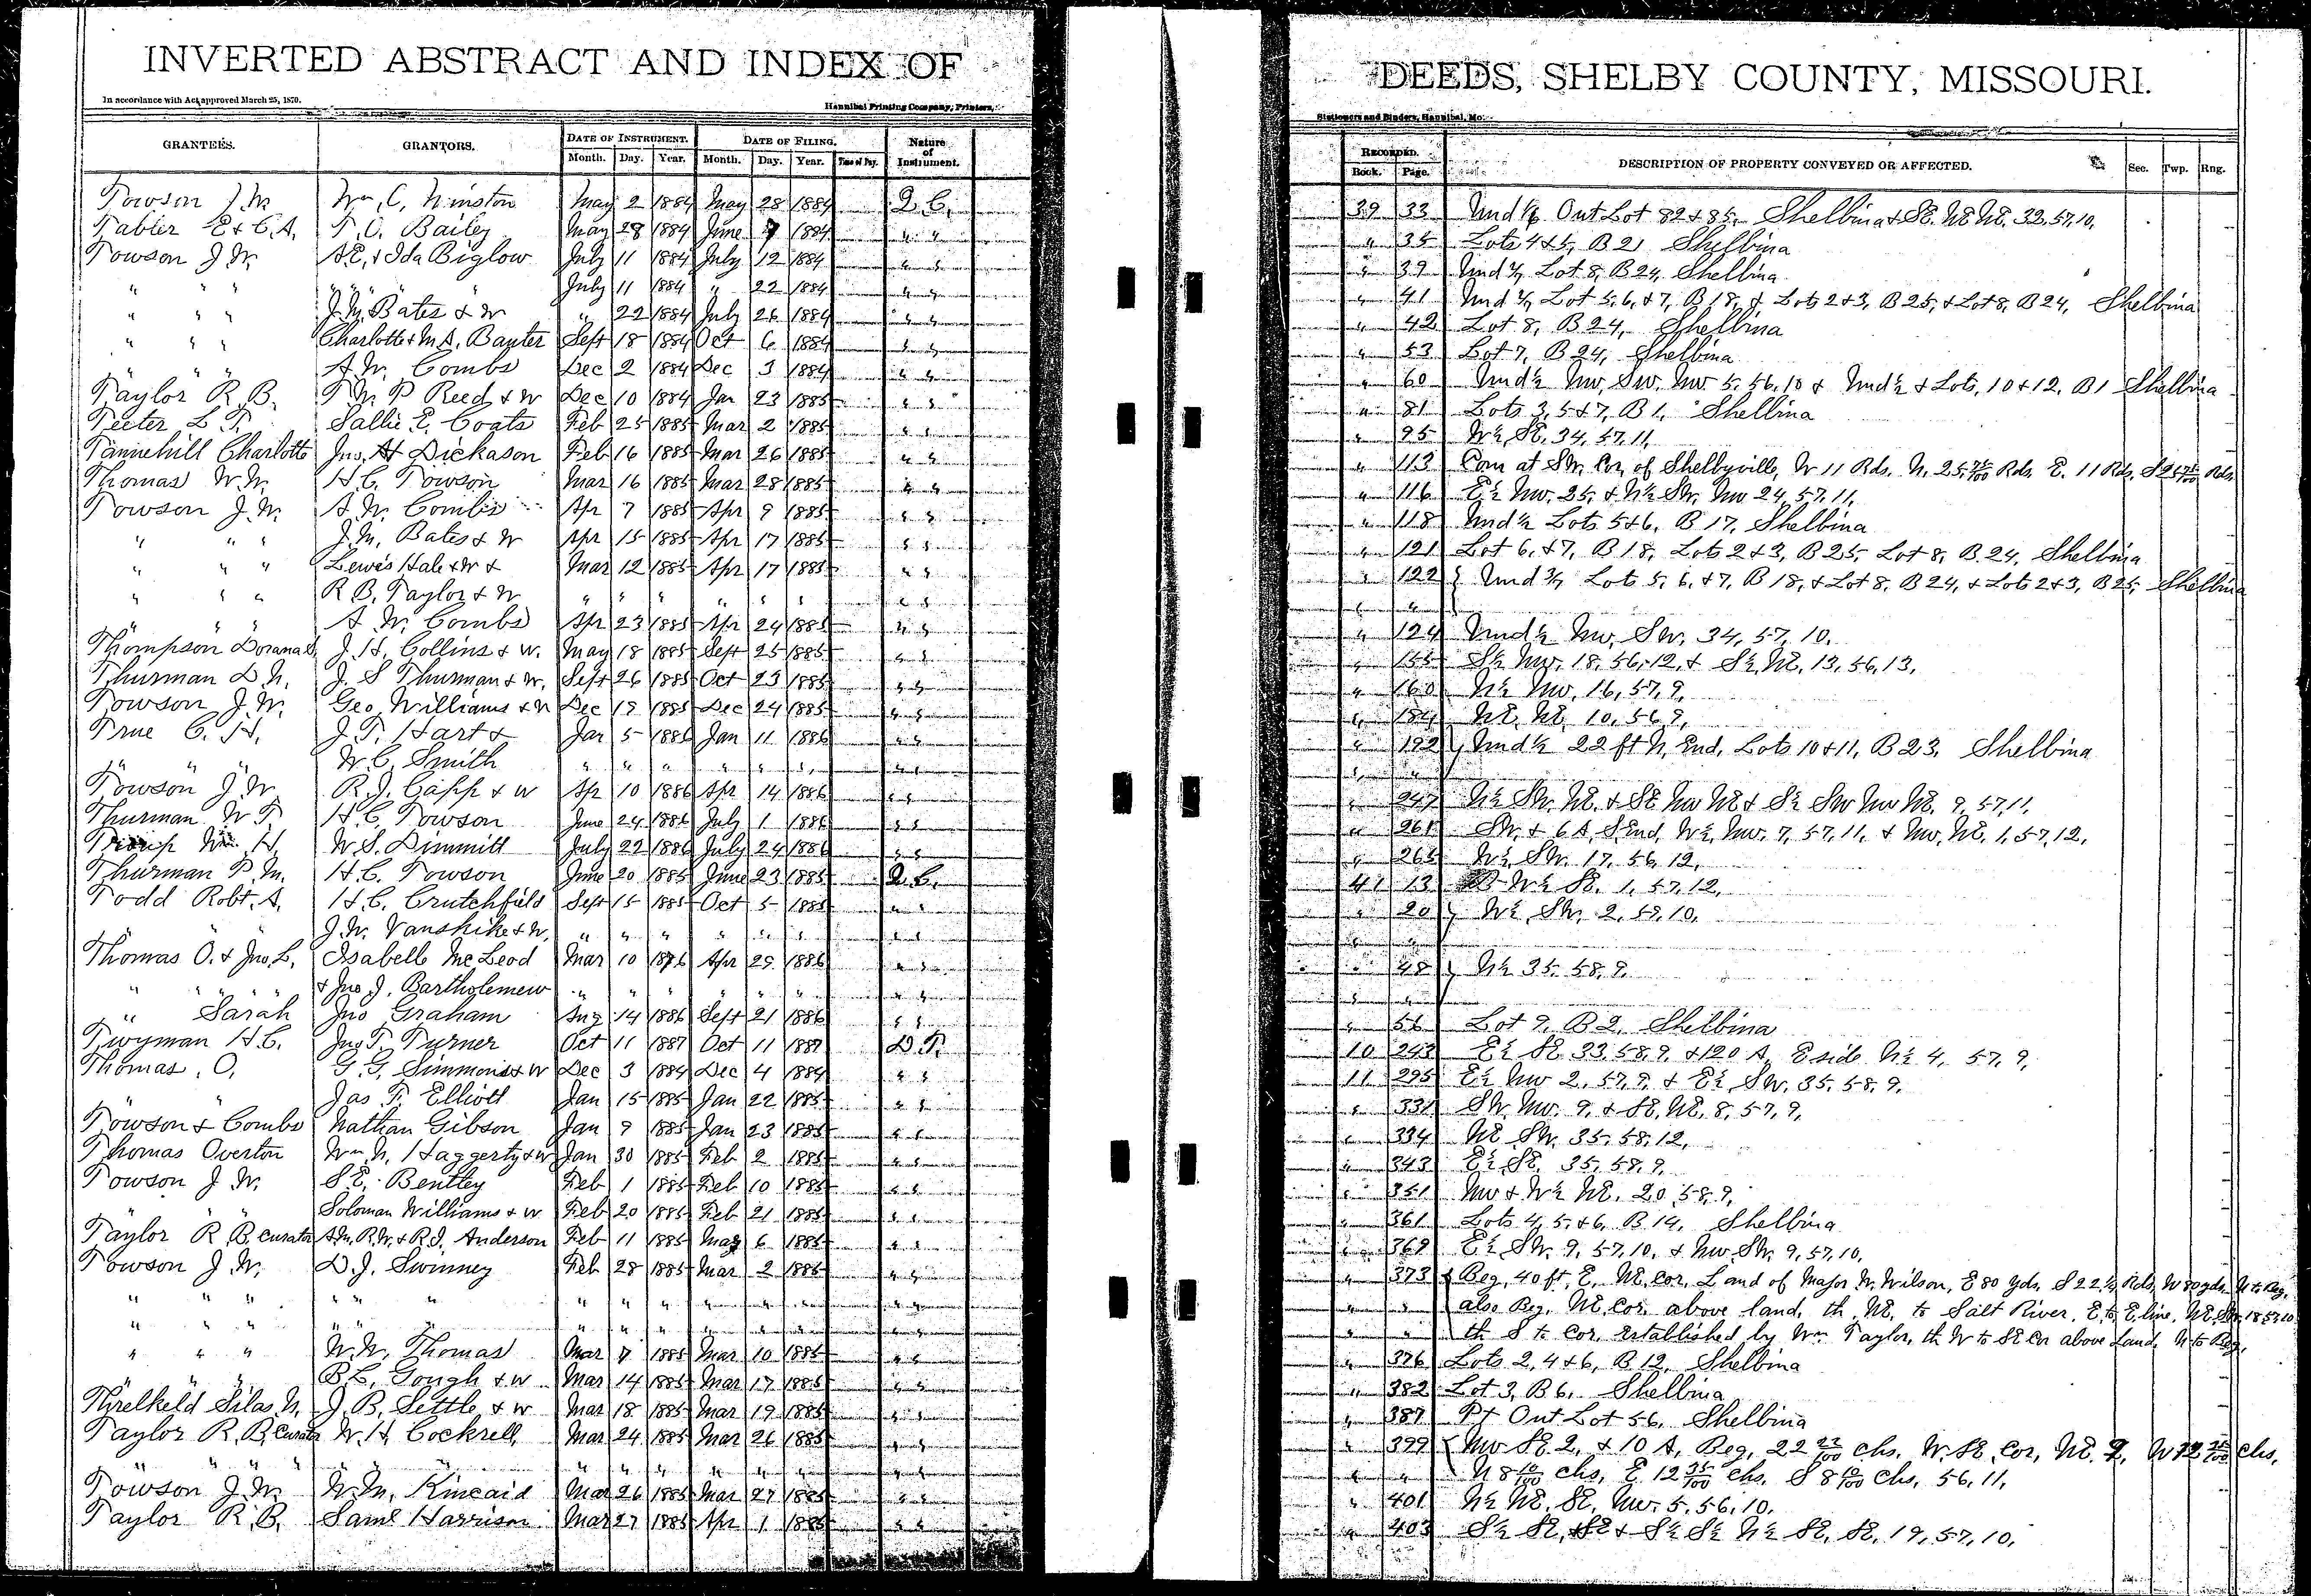 INVERTED ABSTRACT AND INDEX OF DEEDS, SHELBY COUNTY, MISSOURI.
In accordance with Act approved March 25, 1870. Hannibal Printing Company, Printers, Stationers and Binders, Hannibal, Mo.
GRANTEES. GRANTORS. DATE OF INSTRUMENT. DATE OF FILING. Nature of Instrument. RECORDED. DESCRIPTION OF PROPERTY CONVEYED OR AFFECTED. Sec. Twp. Rng.
Month. Day. Year. Month. Day. Year. Time of Day. Book. Page.
Towson J. W. Wm. C. Winston May 2 1884 May 28 1884 Q. C. 39 33 Und 1/6 Out Lot 82 & 85, Shelbina & SE. NE NE. 33, 57, 10,
Tabler E & C. A. T. O. Bailey May 28 1884 June 7 1884 " " " 35 Lots 4 & 5, B 21 Shelbina
Towson J. W. A. E. & Ida Biglow July 11 1884 July 12 1884 " " " 39 Und 1/7 Lot 8, B 24, Shelbina
" " " " " " July 11 1884 " 22 1884 " " " 41 Und 1/7 Lot 5, 6, & 7, B 18, & Lots 2 & 3, B 25, & Lot 8, B 24, Shelbina
" " " J. M. Bates & W " 22 1884 July 26 1884 " " " 42 Lot 8, B 24, Shelbina
" " " Charlotte & M. A. Baxter Sept 18 1884 Oct 6 1884 " " " 53 Lot 7, B 24, Shelbina
" " " A. W. Combs Dec 2 1884 Dec 3 1884 " " " 60 Und ½ NW, SW, NW 5, 56, 10 & Und ½ & Lots, 10 & 12, B 1 Shelbina
Taylor R. B. T. W. P Reed & W Dec 10 1884 Jan 23 1885 " " " 81 Lots 3, 5 & 7, B 1, Shelbina
Teeter L. T. Sallie E. Coats Feb 25 1885 Mar 2 1885 " " " 95 W ½, SE. 34, 57, 11,
Tannehill Charlotte Jno. H Dickason Feb 16 1885 Mar 26 1885 " " " 113 Com at SW. Cor, of Shelbyville, W 11 Rds. N. 25 75/100 Rds. E. 11 Rds, S 25 75/100 Rds.
Thomas W. W. H. C. Towson Mar 16 1885 Mar 28 1885 " " " 116 E ½ NW. 25, & N ½ SW. NW 24, 57, 11,
Towson J. W. A. W. Combs Apr 7 1885 Apr 9 1885 " " " 118 Und ½ Lots 5 & 6, B 17, Shelbina
" " " J. M. Bates & W Apr 15 1885 Apr 17 1885 " " " 121 Lot 6, & 7, B 18, Lots 2 & 3, B 25, Lot 8, B 24, Shelbina
" " " Lewis Hale & W & Mar 12 1885 Apr 17 1885 " " " 122 Und 3/7 Lots 5, 6, & 7, B 18, & Lot 8, B 24, & Lots 2 & 3, B 25, Shelbina
" " " R. B. Taylor & W " " " " " " " " " "
" " " A. W. Combs Apr 23 1885 Apr 24 1885 " " " 124 Und ½ NW, SW. 34, 57, 10.
Thompson J. H. Collins & W. May 18 1885 Sept 25 1885 " " " 155 S ½ NW. 18, 56, 12, & S ½, NE, 13, 56, 13,
Thurman D. N. J. S Thurman & W. Sept 26 1885 Oct 23 1885 " " " 160 N ½ NW, 16, 57, 9,
Towson J. W. Geo. Williams & W Dec 19 1885 Dec 24 1885 " " " 184 NE, NE, 10, 56, 9,
True C. H. J. T. Hart & Jan 5 1886 Jan 11 1886 " " " 192 Und ½ 22 ft N. End, Lots 10 & 11, B 23, Shelbina
" " " W. C. Smith " " " " " " " " " "
Towson J. W. R. J. Capp & W Ap 10 1886 Apr 14 1886 " " " 247 N ½ SW. NE. & SE NW NE & S ½ SW NW NE, 9, 57, 11,
Thurman W T. H. C. Towson June 24 1886 July 1 1886 " " " 261 SW. & 6 A, S. End, W ½, NW. 7, 57, 11, & NW, NE. 1, 57, 12,
Wm. H. W. S. Dimmitt July 22 1886 July 24 1886 " " " 265 W ½ SW. 17, 56, 12,
Thurman P. M. H. C. Towson June 20 1885 June 23 1885 Q. C. 41 13 W ½ SE. 1, 57, 12,
Todd Robt. A. H. C. Crutchfield Sept 15 1885 Oct 5 1885 " " " 20 W ½, SW. 2, 59, 10,
" " " J. W. Vanskike & W. " " " " " " " " " "
Thomas O. & Jno. L. Isabelle McLeod Mar 10 1886 Apr 29 1886 " " " 48 N ½ 35, 58, 9.
" " " " & Jno. J. Bartholemew " " " " " " " " " "
" Sarah Jno Graham Aug 14 1886 Sept 21 1886 " " " 56 Lot 9, B 2, Shelbina
Twyman H. C. Jno. T. Turner Oct 11 1887 Oct 11 1887 D. T. 10 243 E ½ SE 33, 58, 9, & 120 A, E side N ½ 4, 57, 9,
Thomas, O, G. G. Simmons & W Dec 3 1884 Dec 4 1884 " " 11 295 E ½ NW 2, 57, 9, & E ½, SW. 35, 58, 9,
" " Jas T. Elliott Jan 15 1885 Jan 22 1885 " " " 331 SW. NW. 9, & SE, NE, 8, 57, 9,
Towson & Combs Nathan Gibson Jan 9 1885 Jan 23 1885 " " " 334 NE SW. 35, 58, 12,
Thomas Overton Wm. N. Haggerty & W Jan 30 1885 Feb 2 1885 " " " 343 E ½, SE, 35, 58, 9,
Towson J. W. S. E. Bentley Feb 1 1885 Feb 10 1885 " " " 351 NW & W ½ NE. 20, 58, 9,
" " Soloman Williams & W Feb 20 1885 Feb 21 1885 " " " 361 Lots 4, 5, & 6, B 14, Shelbina
Taylor R. B. Curator A. M. R. W. & R. J. Anderson Feb 11 1885 6 1885 " " " 369 E ½, SW. 9, 57, 10, & NW. SW. 9, 57, 10,
Towson J. W. D. J. Swinney Feb 28 1885 Mar 2 1885 " " " 373 Beg, 40 ft, E, NE, Cor, Land of Major W. Wilson, E 80 yds, S 22 ½ Rds, W 80 yds, N to Beg,
" " " " " " " " " " " " " " " " also Beg. NE, Cor. above land, th. NE, to Salt River, E to E line, NE, SW. 18, 57, 10
" " " " " " " " " " " " " " " " th S to Cor. established by Wm. Taylor, th W to SE Cor above Land, N to Beg,
" " " W. W. Thomas Mar 7 1885 Mar 10 1885 " " " 376 Lots 2, 4 & 6, B 12, Shelbina
" " " B. L. Gough & W Mar 14 1885 Mar 17 1885 " " " 382 Lot 3, B 6, Shelbina
Threlkeld Silas N. J. B. Settle & W Mar 18 1885 Mar 19 1885 " " " 387 Pt Out Lot 56, Shelbina
Taylor R. B. Curator W. H. Cockrell, Mar 24 1885 Mar 26 1885 " " " 399 NW SE 2, & 10 A, Beg, 22 22/100 chs, W. SE, Cor, NE. 2, W 12 35/100 chs,
" " " " " " " " " " " " " " N 8 10/100 chs, E. 12 35/100 chs, S 8 10/100 chs, 56, 11,
Towson J. W. W. M. Kincaid Mar 26 1885 Mar 27 1885 " " " 401 N ½ NE, SE, NW. 5, 56, 10,
Taylor R. B. Saml Harrison Mar 27 1885 Apr 1 1885 " " " 403 S ½ SE, SE & S ½ S ½ N ½ SE, SE, 19, 57, 10,